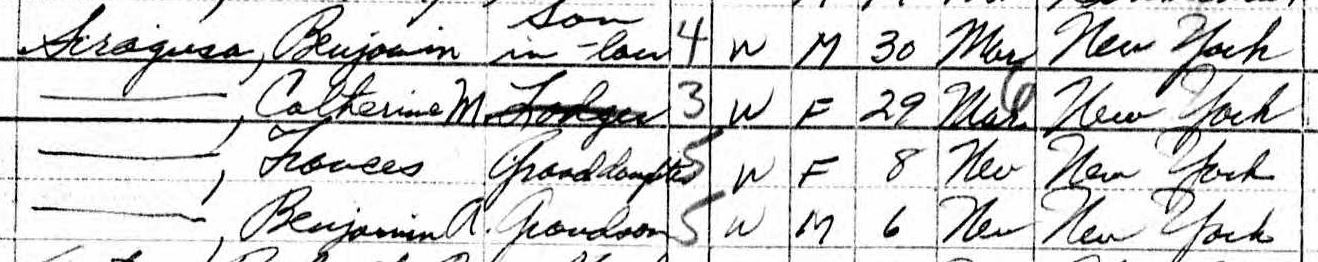 Siragusa, Benjamin Son in-law 4 W M 30 Mar New York
, Catherine M. Lodger 3 W F 29 Mar New York
, Frances Granddaughter 5 W F 8 Nev New York
, Benjamin A. Grandson 5 W M 6 Nev New York